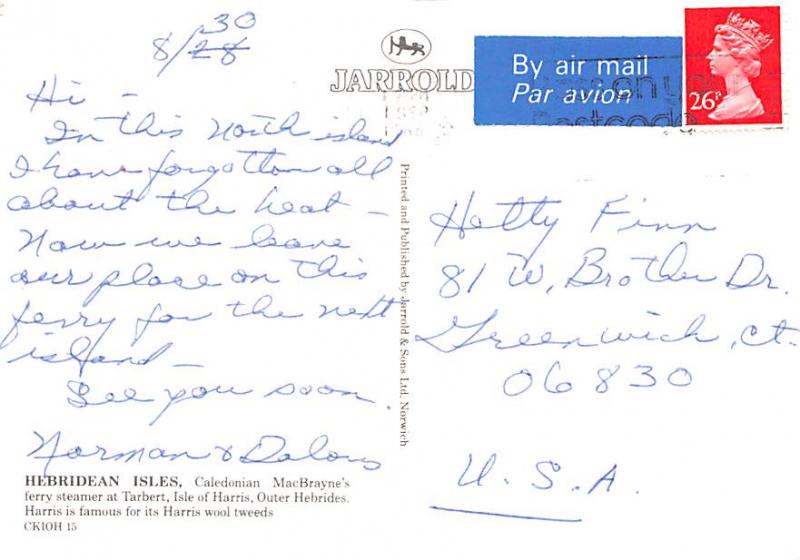 30
8/28
Hi -
In this North island
I have forgotten all
about the heat -
Now we leave
our place on this
ferry for the next
island -
See you soon.
Norman & Dolores
HEBRIDEAN ISLES, Caledonian MacBrayne's
ferry steamer at Tarbert, Isle of Harris, Outer Hebrides.
Harris is famous for its Harris wool tweeds
CKIOH 15
JARROLD
Printed and Published by Jarrold & Sons Ltd, Norwich
By air mail
Par avion
26P
SEP
Postcode
Hetty Finn
81 W. Brother Dr.
Greenwich, Ct.
06830
U.S.A.